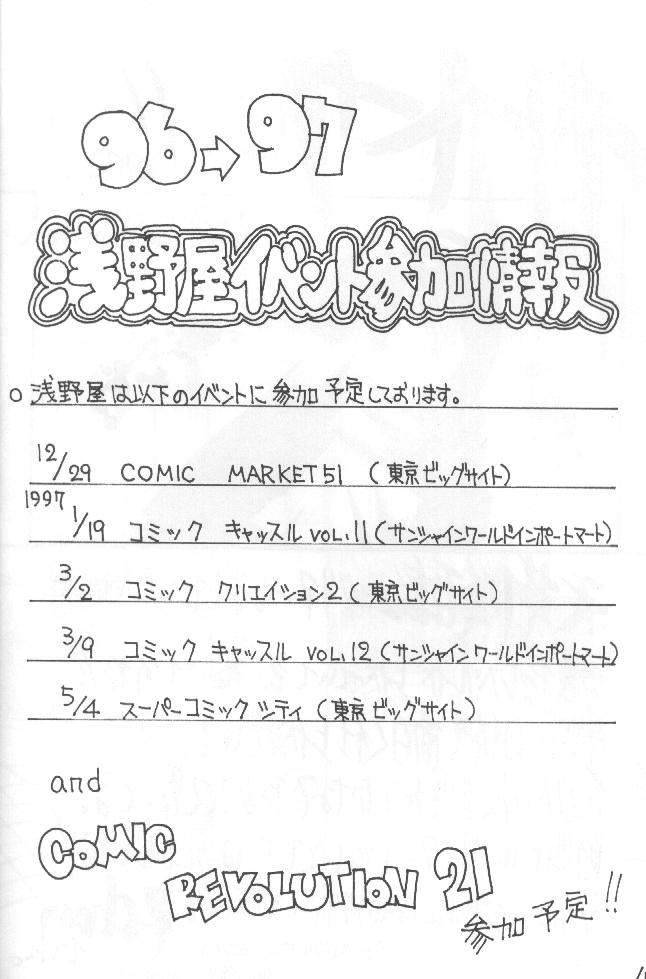 96→97
浅野屋イベント参加情報
○ 浅野屋は以下のイベントに参加予定しております。
12/29 COMIC MARKET51 (東京ビッグサイト)
1997
1/19 コミック キャッスル VOL.11(サンシャインワールドインポートマート)
3/2 コミック クリエイション2(東京ビッグサイト)
3/9 コミック キャッスル VOL.12(サンシャインワールドインポートマート)
5/4 スーパーコミックシティ(東京ビッグサイト)
and
COMIC
REVOLUTION 21
参加予定!!